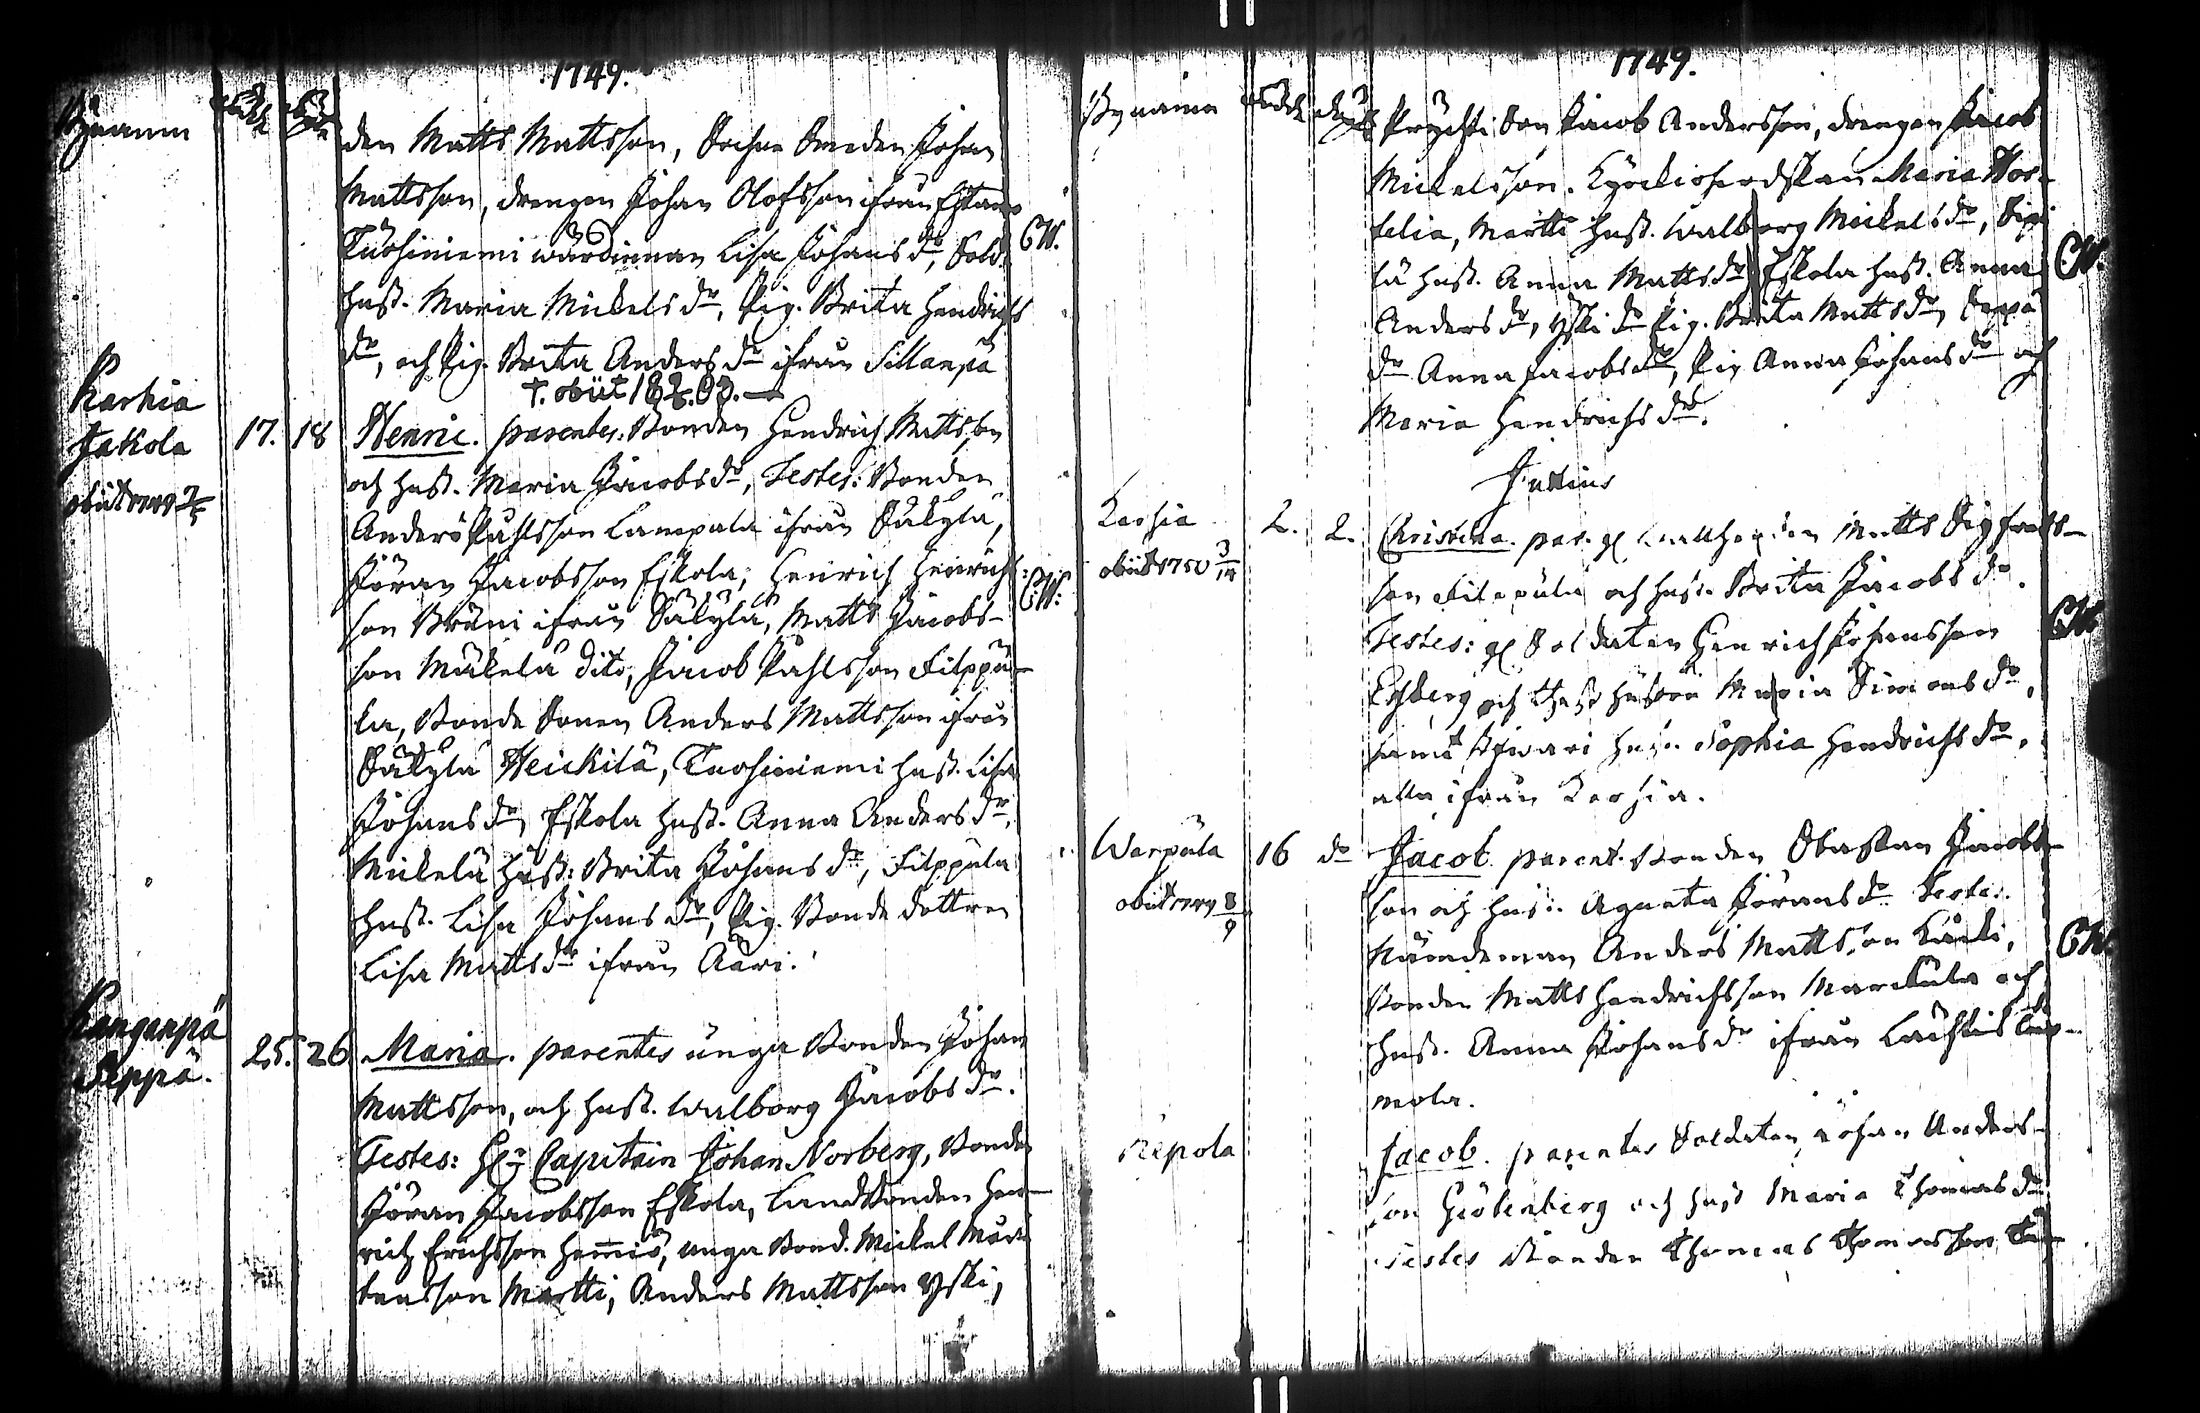 1749.
Bynamn
den Matts Mattsson, Sochne Smeden Johan
Mattsson, drengen Johan Olofsson ifrån Eskano
Tuohiniemi wärdinnan Lisa Johans dr, Sold. CW.
hust. Maria Mickels dr, Pig. Brita Hendrichs
dr, och Pig. Brita Anders dr ifrån Sillanpä
†. obiit
Karhia
Jakola 17. 18 Henric. parentes: Bonden Hendrich Mattson
och hust. Maria Jacobs dr, Testes: Bonden
obiit 1749
Anders Pahlsson Lampala ifrån Säkylä,
Jöran Jacobsson Eskola, Henrich Henrichs-
son Bräni ifrån Säkylä, Matts Jacobs- CW.
son Mäkelä dito, Jacob Pahlsson Filppu-
la, Bonde Sonen Anders Mattsson ifrån
Säkylä Heickilä, Tuohiniemi hust. Lisa
Johans dr, Eskola hust. Anna Anders dr,
Mickelä hust: Brita Johans dr, Filppula
hust. Lisa Johans dr, Pig. Bonde dottren
Lisa Matts dr ifrån Äari.
Kanganpä
Seppä. 25. 26 Maria. parentes unga Bonden Johan
Mattsson, och hust. Walborg Jacobs dr.
Testes: Hr Capitain Johan Norberg, Bonden
Jöran Jacobsson Eskola, Landbonden Hen-
rich Erichsson Hemiö, unga Bond. Mickel Mår-
tensson Martti, Anders Mattsson Yski,
1749.
Bynamn
Prychti Son Jacob Andersson, drengen Jacob
Mickelsson. Kyrckioherdskan Maria Wos-
telia, Martti hust. Walborg Mickels dr, Sipi
lä hust. Anna Matts dr Eskola hust. Anna CW.
Anders dr, Yski dr Pig. Brita Matts dr, Seppä
dr Anna Jacobs dr, Pig Anna Johans dr och
Maria Hendrichs dr.
Junius
Karhia 2. 2. Christina. par. gl Matts Sigfreds-
obiit 1750 3/14
son Filppula och hust. Brita Jacobs dr.
Testes: gl Soldaten Henrich Johansson CW.
Ekberg och dess hustru Maria Simons dr,
samt hust. Sophia Hendrichs dr,
alla ifrån Karhia.
Warpula 16 do Jacob. parent. Bonden Jacobs-
obiit 1749 8/9
son och hust. Agneta Jörans dr Testes:
Nämdeman Anders Mattsson Kårki, CW.
Bonden Matts Hendrichsson Marckula och
hust. Anna Johans dr ifrån
mola.
Repola Jacob. parentes Soldaten Johan Anders-
son Götenberg och hust Maria Thomas dr
Testes Bonden Thomas Thomasson